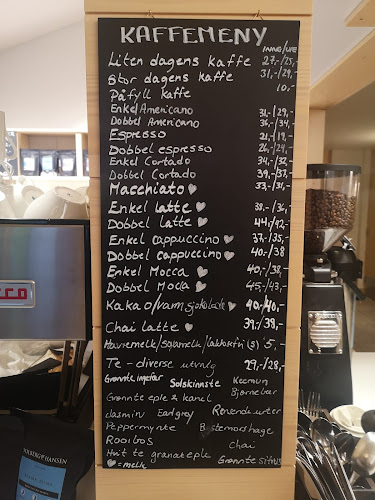 KAFFEMENY
INNE/UTE
Liten dagens kaffe 27,-/25,-
Stor dagens kaffe 31,-/29,-
Påfyll kaffe 10,-
Enkel Americano 31,-/29,-
Dobbel Americano 36,-/34,-
Espresso 21,-/19,-
Dobbel espresso 26,-/24,-
Enkel Cortado 34,-/32,-
Dobbel Cortado 39,-/37,-
Macchiato ♥ 33,-/31,-
Enkel latte ♥ 38,-/36,-
Dobbel latte ♥ 44,-/42,-
Enkel cappuccino ♥ 37,-/35,-
Dobbel cappuccino ♥ 40,-/38
Enkel Mocca ♥ 40,-/38,-
Dobbel Mocca ♥ 45,-/43,-
Kakao/varm sjokolade ♥ 40,-/40,-
Chai latte ♥ 39,-/38,-
Havremelk/soyamelk/laktosfri (3) 5,-
Te - diverse utvalg 29,-/28,-
Grønnte ingefær Solskinnste Keemun
Grønnte eple & kanel Bjørnebær
Jasmin Earl grey Røverdatter
Peppermynte Bestemorshage
Rooibos Chai
Hvit te granateple Grønnte sitrus
♥=melk
SOLBERG & HANSEN